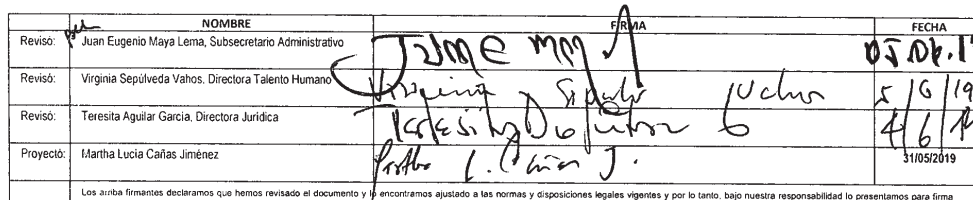 NOMBRE FIRMA FECHA
Revisó: Juan Eugenio Maya Lema, Subsecretario Administrativo
Revisó: Virginia Sepúlveda Vahos, Directora Talento Humano 5/6/19
Revisó: Teresita Aguilar Garcia, Directora Jurídica Teresita Aguilar G 4/6/19
Proyectó: Martha Lucía Cañas Jiménez Martha L. Cañas J. 31/05/2019
Los arriba firmantes declaramos que hemos revisado el documento y lo encontramos ajustado a las normas y disposiciones legales vigentes y por lo tanto, bajo nuestra responsabilidad lo presentamos para firma